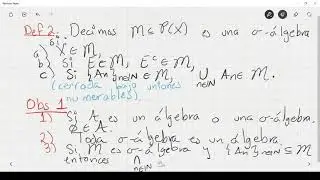 Def 2. Decimos M ⊆ P(X) es una σ-álgebra
a) X ∈ M,
b) Si E ∈ M, E^c ∈ M.
c) Si {An}n∈N ∈ M, ⋃n∈N An ∈ M.
(cerrada bajo uniones
numerables).
Obs 1
1) Si A es un álgebra o una σ-álgebra.
∅ ∈ A.
2) Toda σ-álgebra es un álgebra.
3) Si M es σ-álgebra y {An}n∈N ⊆ M
entonces ⋂n∈N